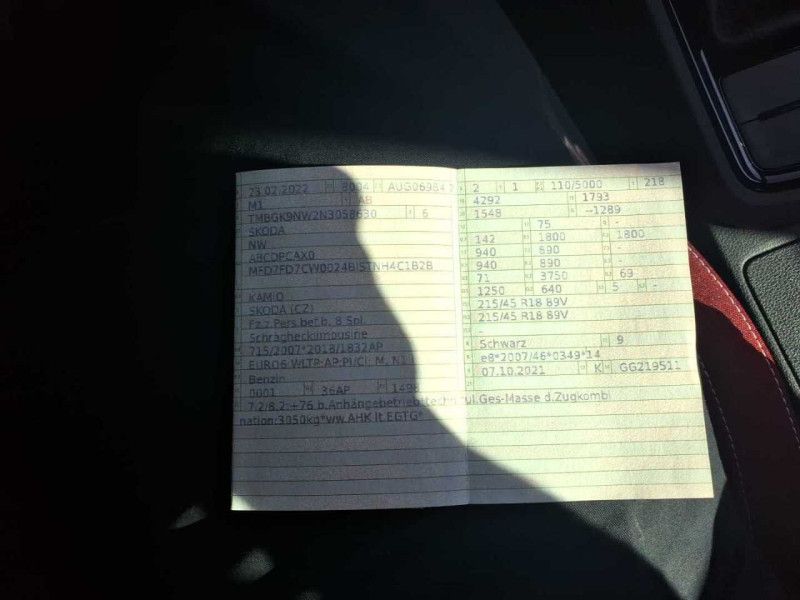 23.02.2022 8004 AUG06984 2
M1 AB
TMBGK9NW2N3058630 6
SKODA
NW
ABCDPCAX0
MFD7FD7CW0024BISTNH4C1B2B
KAMIQ
SKODA (CZ)
Fz.z.Pers.bef.b. 8 Spl.
Schräghecklimousine
715/2007*2018/1832AP
EURO6 WLTP-AP-PI/CI; M, N1
Benzin
0001 36AP 1498
2 1 110/5000 218
4292 1793
1548 --1289
75 -
142 1800 1800
940 890 -
940 890 -
71 3750 69
1250 640 5 -
215/45 R18 89V
215/45 R18 89V
-
Schwarz 9
e8*2007/46*0349*14
07.10.2021 K GG219511
7.2/8.2:+76 b.Anhängebetrieb*techn.zul.Ges-Masse d.Zugkombi
nation:3050kg*ww.AHK lt.EGTG*